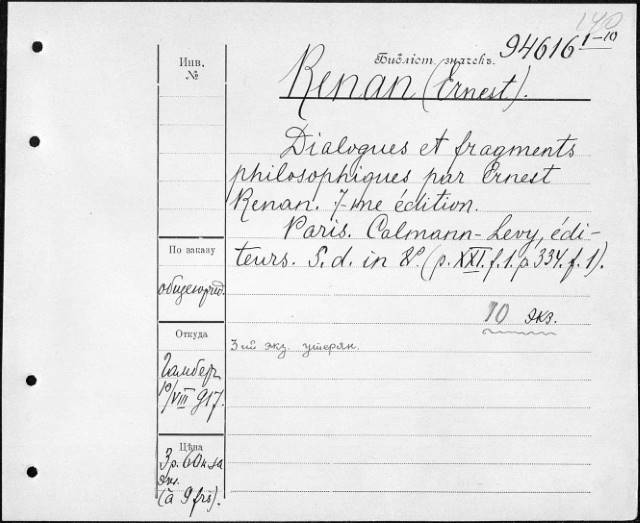 140
Инв.
№
Библіот. значекъ.
94616 1-10
Renan (Ernest).
Dialogues et fragments
philosophiques par Ernest
Renan. 7-me édition.
Paris. Calmann-Levy, édi-
teurs. S. d. in 8º. (p. XXI. f. 1. p 334. f. 1).
По заказу
общеюрид.
10 экз.
Откуда
3-ий экз. утерян.
Гамбер
10/VIII 917.
Цѣна
3 р. 60 к за
экз.
(à 9 frs).